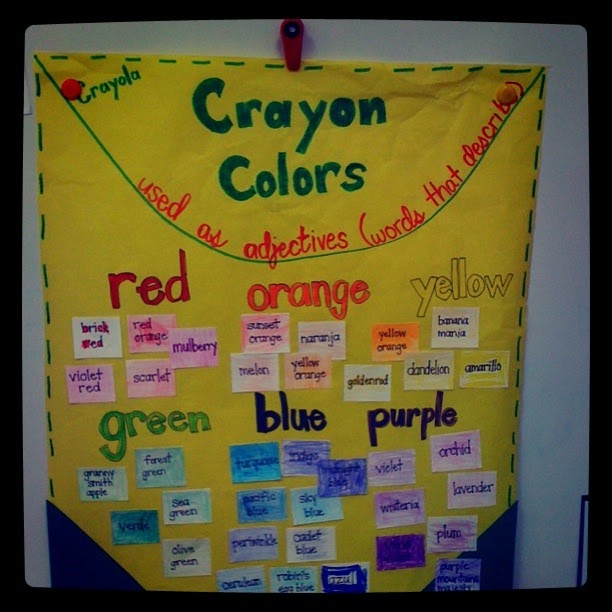 Crayola
Crayon
Colors
used as adjectives (words that describe)
red
orange
yellow
brick
red
red
orange
mulberry
violet
red
scarlet
sunset
orange
naranja
melon
yellow
orange
yellow
orange
banana
mania
goldenrod
dandelion
amarillo
green
blue
purple
granny
smith
apple
forest
green
sea
green
verde
olive
green
turquoise
indigo
midnight
blue
pacific
blue
sky
blue
periwinkle
cadet
blue
cerulean
robin's
egg blue
azul
orchid
violet
lavender
wisteria
plum
purple
mountains
majesty